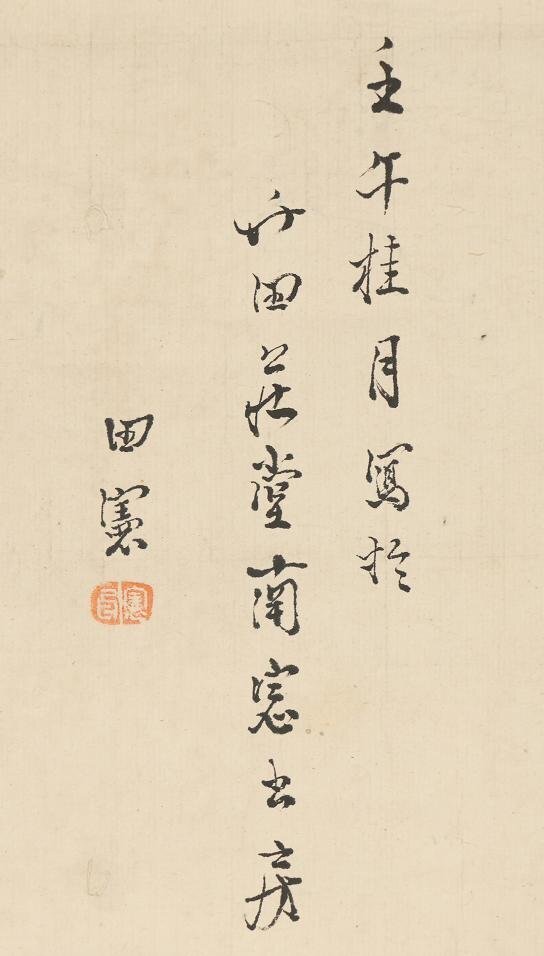 壬午桂月寫於
竹田莊堂南窓書房
田憲